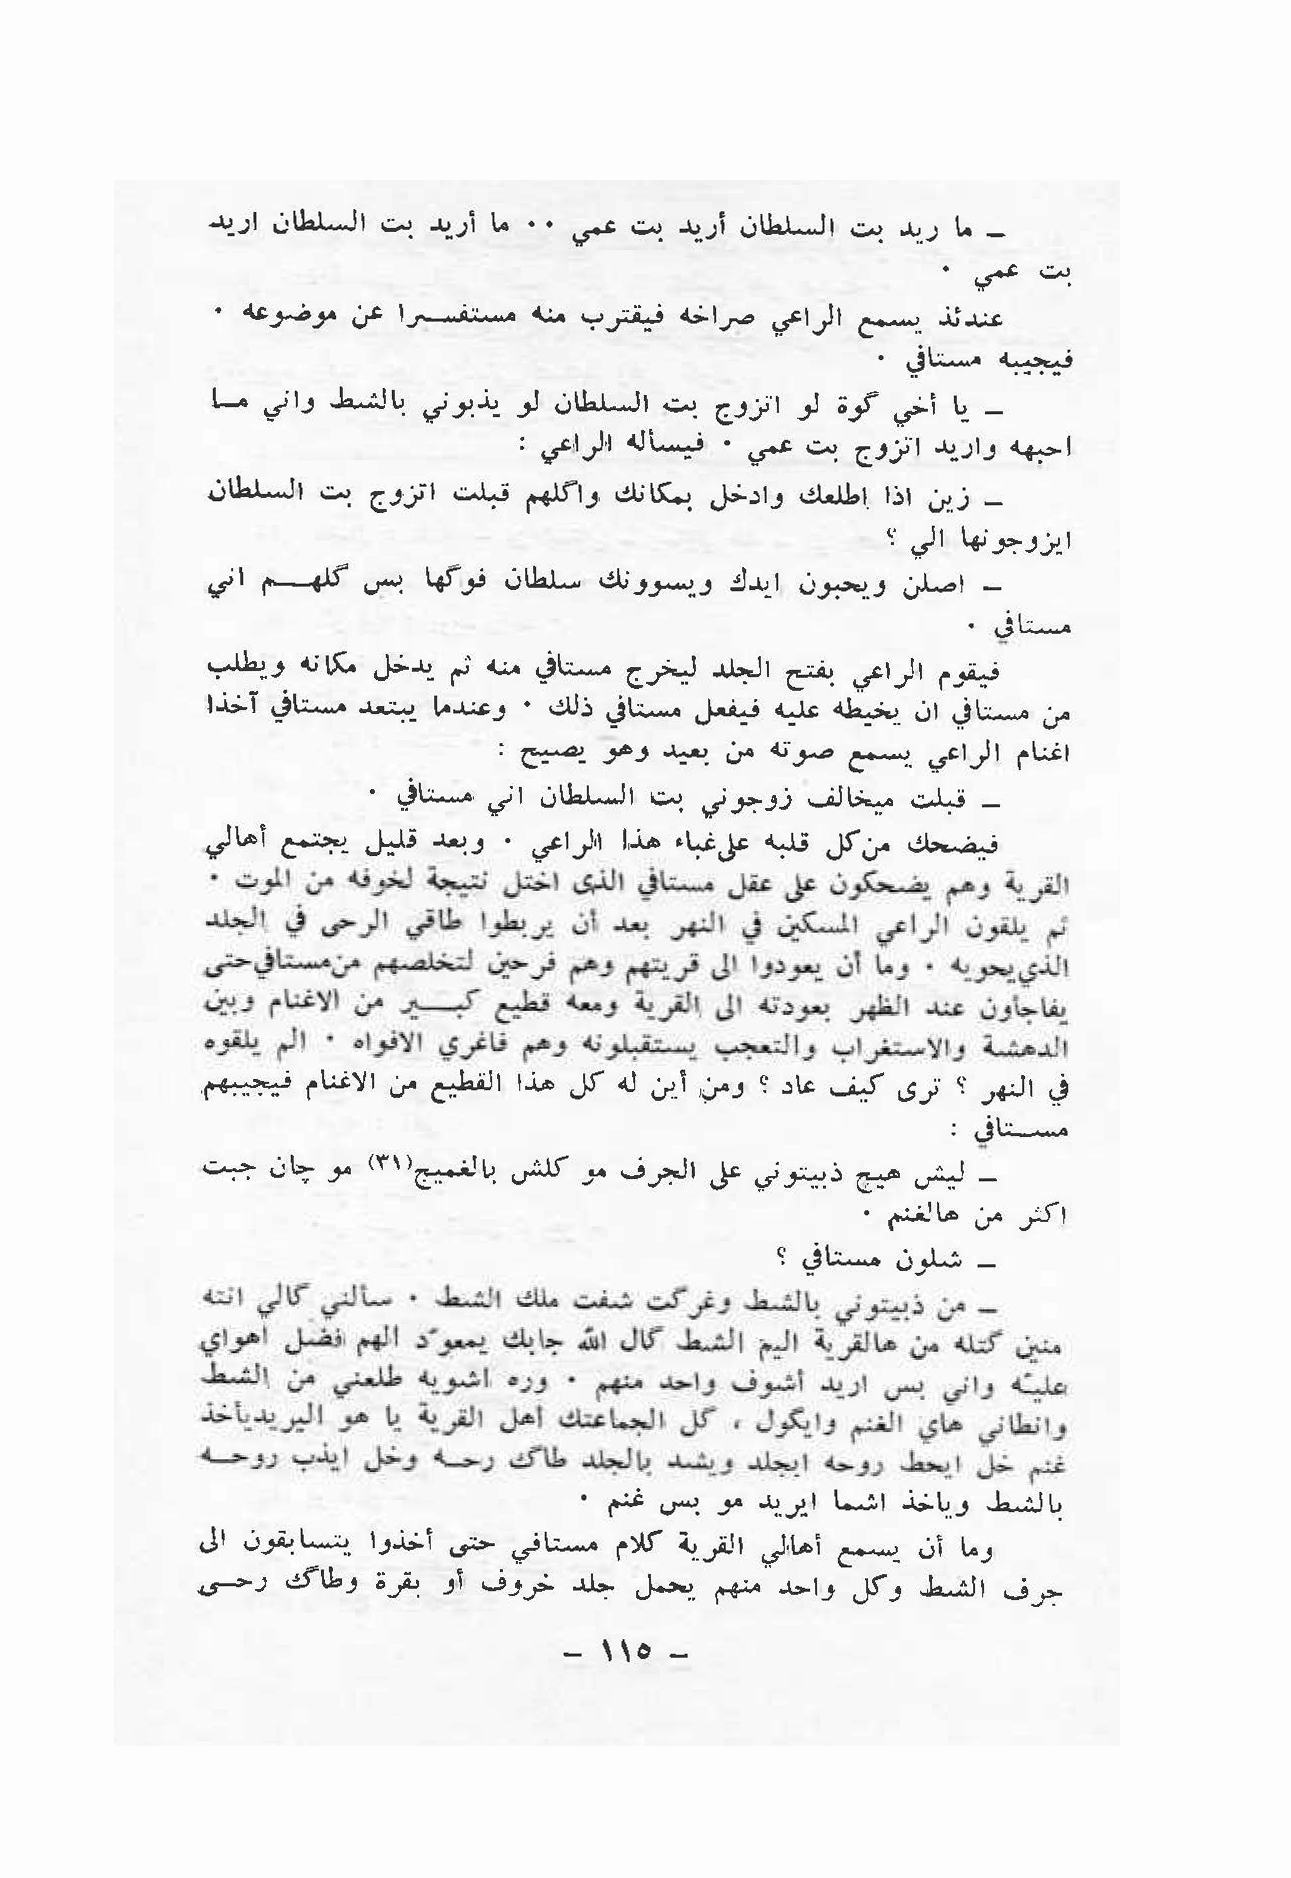 ــ ما ريد بت السلطان أريد بت عمي ٠٠ ما أريد بت السلطان اريد
بت عمي ٠
عندئذ يسمع الراعي صراخه فيقترب منه مستفسرا عن موضوعه ٠
فيجيبه مستافي ٠
ــ يا أخي گوة لو اتزوج بت السلطان لو يذبوني بالشط واني مــا
احبهه واريد اتزوج بت عمي ٠ فيسأله الراعي :
ــ زين اذا اطلعك وادخل بمكانك واگلهم قبلت اتزوج بت السلطان
ايزوجونها الي ؟
ــ اصلن ويحبون ايدك ويسوونك سلطان فوگها بس گلهــم اني
مستافي ٠
فيقوم الراعي بفتح الجلد ليخرج مستافي منه ثم يدخل مكانه ويطلب
من مستافي ان يخيطه عليه فيفعل مستافي ذلك ٠ وعندما يبتعد مستافي آخذا
اغنام الراعي يسمع صوته من بعيد وهو يصيح :
ــ قبلت ميخالف زوجوني بت السلطان اني مستافي ٠
فيضحك من كل قلبه على غباء هذا الراعي ٠ وبعد قليل يجتمع أهالي
القرية وهم يضحكون على عقل مستافي الذى اختل نتيجة لخوفه من الموت ٠
ثم يلقون الراعي المسكين في النهر بعد أن يربطوا طاقي الرحى في الجلد
الذي يحويه ٠ وما أن يعودوا الى قريتهم وهم فرحين لتخلصهم من مستافي حتى
يفاجأون عند الظهر بعودته الى القرية ومعه قطيع كبــير من الاغنام وبين
الدهشة والاستغراب والتعجب يستقبلونه وهم فاغري الافواه ٠ الم يلقوه
في النهر ؟ ترى كيف عاد ؟ ومن أين له كل هذا القطيع من الاغنام فيجيبهم
مستافي :
ــ ليش هيچ ذبيتوني على الجرف مو كلش بالغميج(٣١) مو چان جبت
اكثر من هالغنم ٠
ــ شلون مستافي ؟
ــ من ذبيتوني بالشط وغرگت شفت ملك الشط ٠ سألني گالي انته
منين گتله من هالقرية اليم الشط گال الله جابك يمعوّد الهم افضل اهواي
عليّه واني بس اريد أشوف واحد منهم ٠ وره اشويه طلعني من الشط
وانطاني هاي الغنم وايگول ، گل الجماعتك اهل القرية يا هو اليريد يأخذ
غنم خل ايحط روحه ابجلد ويشد بالجلد طاگ رحــه وخل ايذب روحــه
بالشط وياخذ اشما ايريد مو بس غنم ٠
وما أن يسمع أهالي القرية كلام مستافي حتى أخذوا يتسابقون الى
جرف الشط وكل واحد منهم يحمل جلد خروف أو بقرة وطاگ رحــى
ــ ١١٥ ــ